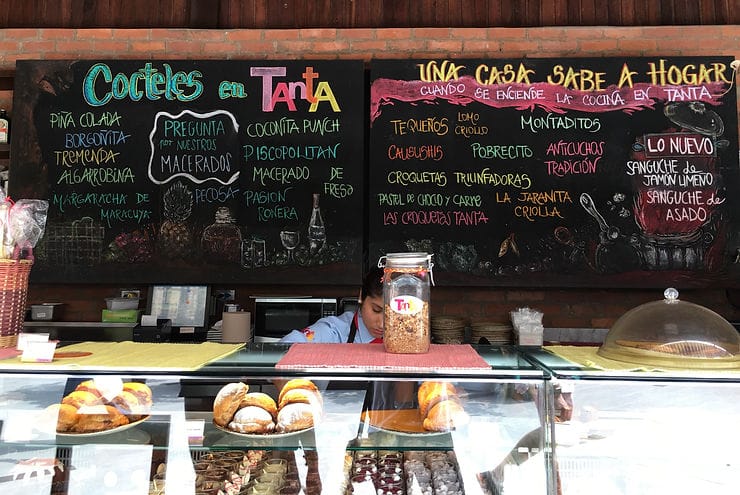 COCTELES EN TANTA
PIÑA COLADA
BORGOÑITA
TREMENDA
ALGARROBINA
MARGARACHA DE
MARACUYA
PREGUNTA
POR NUESTROS
MACERADOS
PECOSA
COCOÑITA PUNCH
PISCOPOLITAN
MACERADO DE
FRESA
PASION
SONERA
UNA CASA SABE A HOGAR
CUANDO SE ENCIENDE LA COCINA EN TANTA
TEQUEÑOS
LOMO
CRIOLLO
MONTADITOS
CAUSUSHIS
POBRECITO
ANTICUCHOS
TRADICIÓN
CROQUETAS TRIUNFADORAS
PASTEL DE CHOCLO Y CARNE
LA JARANITA
CRIOLLA
LAS CROQUETAS TANTA
LO NUEVO
SANGUCHE DE
JAMON LIMEÑO
SANGUCHE DE
ASADO
Tanta